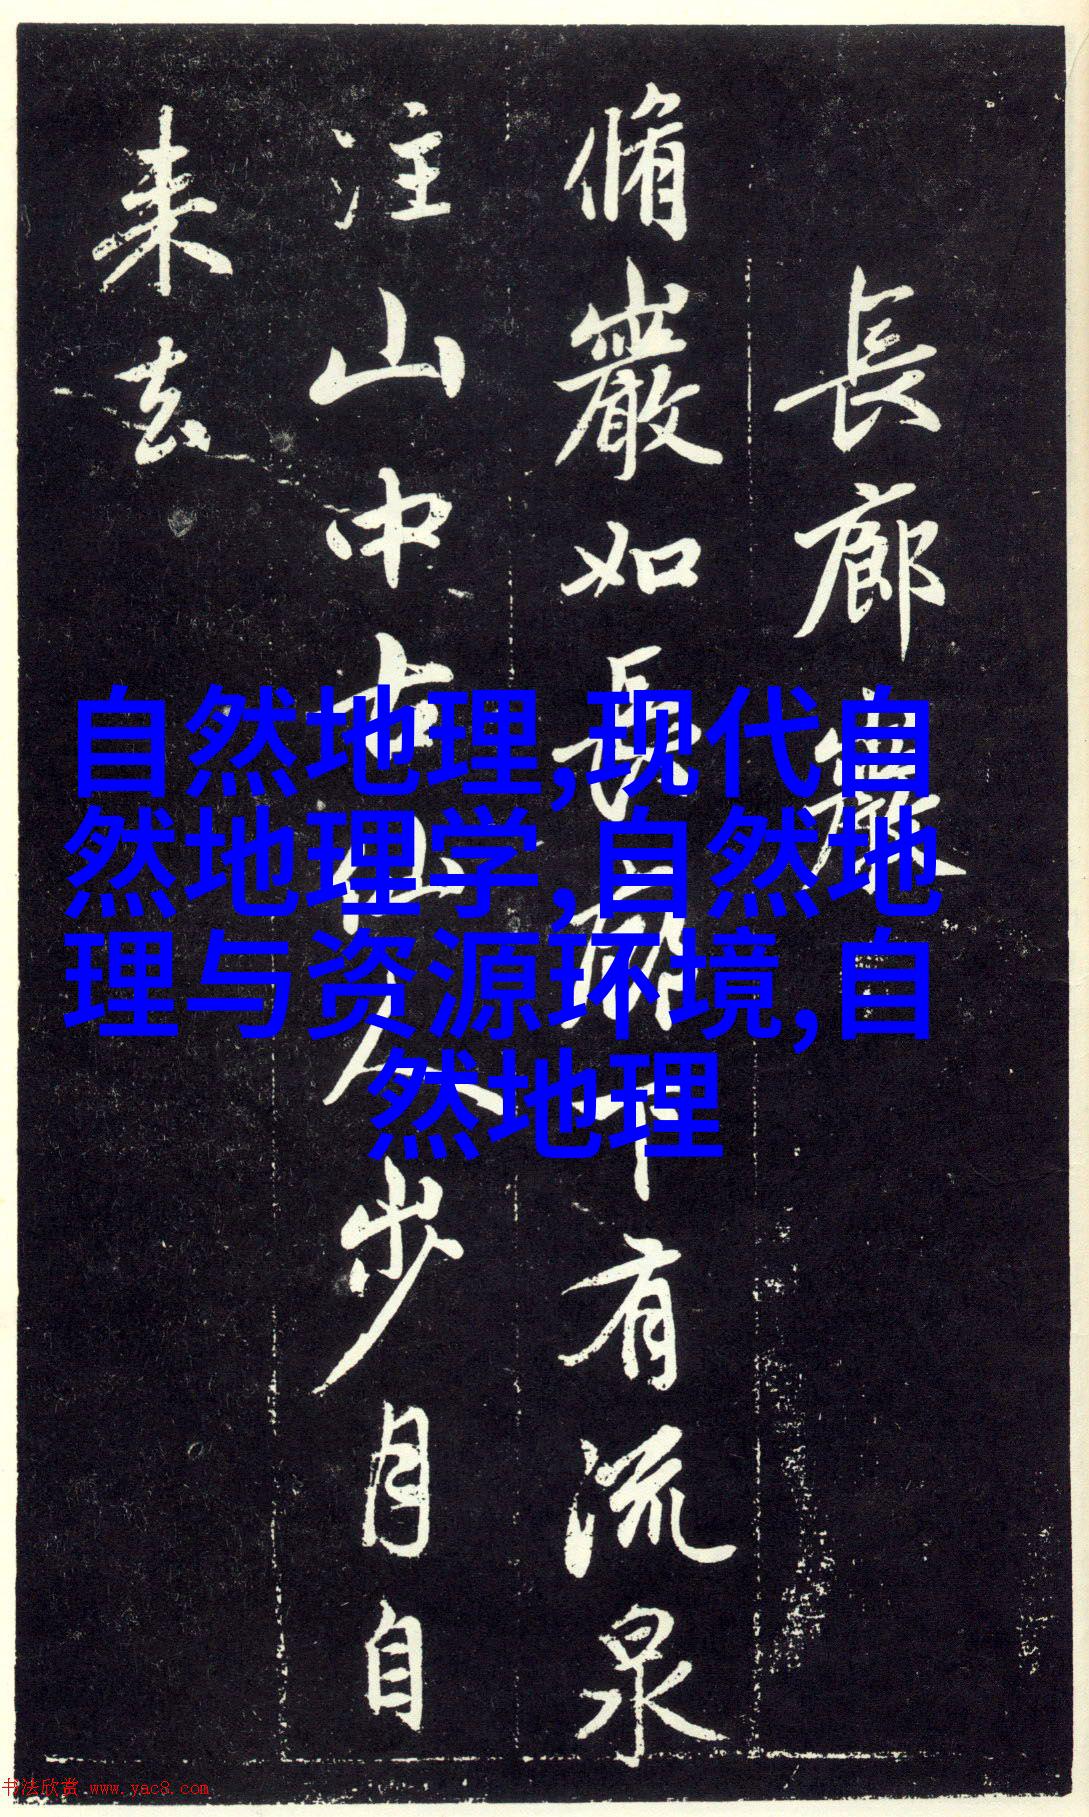 長廊巖
脩巖如長廊下有流泉
注山中古仙人步月自
来去
自然地理,现代自
然地理学,自然地
理与资源环境,自
然地理
书法欣赏 www.yac8.com